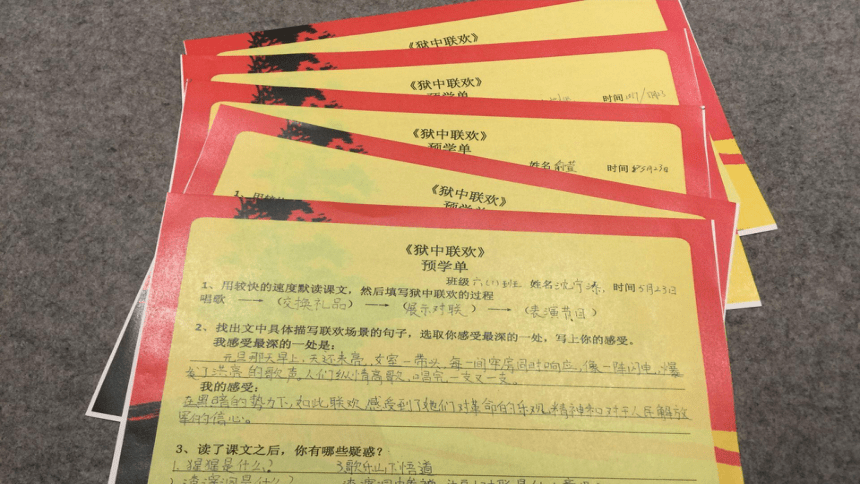 《狱中联欢》
《狱中联欢》
预学单
时间
《狱中联欢》
预学单
姓名 俞萱 时间 5月23日
《狱中联欢》
《狱中联欢》
预学单
班级 六(1)班 姓名 沈 时间 5月23日
1、用较快的速度默读课文，然后填写狱中联欢的过程
唱歌 → （交换礼品） → （展示对联） → （表演节目）
2、找出文中具体描写联欢场景的句子，选取你感受最深的一处，写上你的感受。
我感受最深的一处是：
元旦那天早上，天还未亮，女室一带头，每一间牢房同时响应，像一阵闪电，爆
发了洪亮的歌声。人们纵情高歌，唱完一支又一支。
我的感受：
在黑暗的势力下，如此联欢，感受到了她们对革命的乐观精神和对于人民解放
军的信心。
3、读了课文之后，你有哪些疑惑？
1.猩猩是什么？ 3.歌乐山下悟道